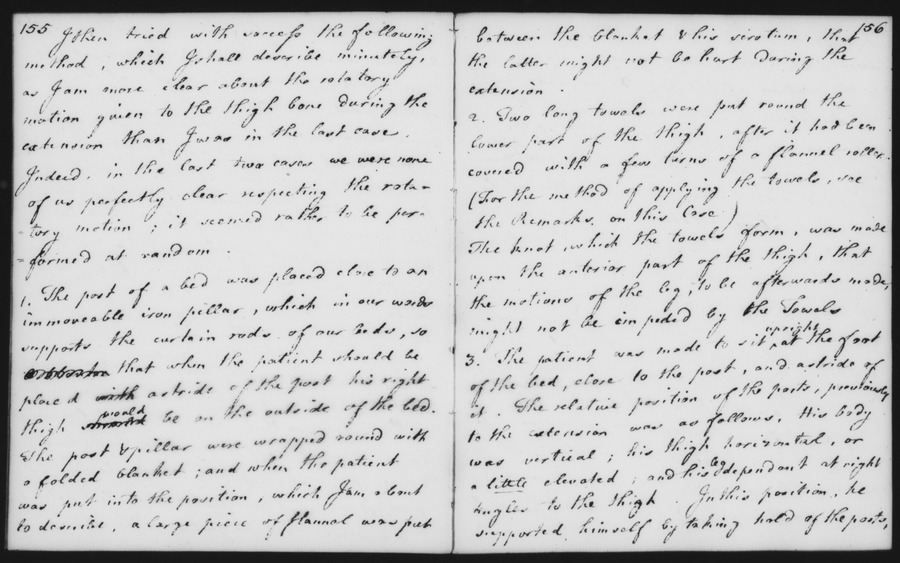 155
I then tried with success the following
method, which I shall describe minutely,
as I am more clear about the rotatory
motion given to the thigh bone during the
extension than I was in the last case.
Indeed, in the last two cases we were none
of us perfectly clear respecting the rota=
tory motion; it seemed rather to be per-
=formed at random.
1. The post of a bed was placed close to an
immoveable iron pillar, which in our wards
supports the curtain rods of our beds, so
that when the patient should be
placed with astride of the post his right
thigh should would be on the outside of the bed.
The post & pillar were wrapped round with
a folded blanket; and when the patient
was put into the position, which I am about
to describe, a large piece of flannel was put
156
between the blanket & his scrotum, that
the latter might not be hurt during the
extension.
2. Two long towels were put round the
lower part of the thigh, after it had been
covered with a few turns of a flannel roller.
(For the method of applying the towels, see
the Remarks, on this Case)
The knot, which the towels form, was made
upon the anterior part of the thigh, that
the motions of the leg, to be afterwards made,
might not be impeded by the Towels
3. The patient was made to sit upright, at the foot
of the bed, close to the post, and astride of
it. The relative position of the parts, previously
to the extension was as follows. His body
was vertical; his thigh horizontal, or
a little elevated; and his leg dependent at right
angles to the thigh. In this position, he
supported himself by taking hold of the posts,